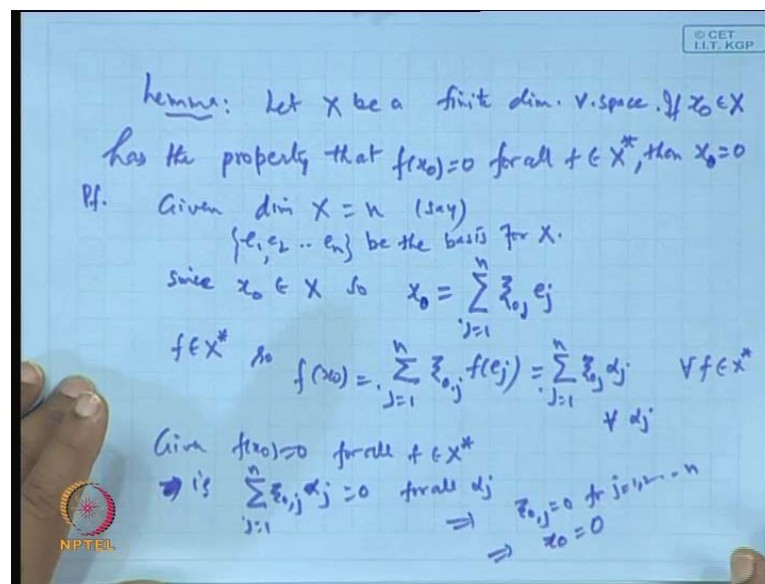 © CET
I.I.T. KGP
Lemma: Let X be a finite dim. v. space. If x₀ ∈ X
has the property that f(x₀)=0 for all f ∈ X*, then x₀=0
Pf. Given dim X = n (say)
{e₁, e₂ .. eₙ} be the basis for X.
since x₀ ∈ X so x₀ = ∑_{j=1}^{n} ξ₀,ⱼ eⱼ
f ∈ X* so f(x₀) = ∑_{j=1}^{n} ξ₀,ⱼ f(eⱼ) = ∑_{j=1}^{n} ξ₀,ⱼ αⱼ ∀ f ∈ X*
∀ αⱼ
Given f(x₀)=0 for all f ∈ X*
is ∑_{j=1}^{n} ξ₀,ⱼ αⱼ = 0 for all αⱼ
⇒ ξ₀,ⱼ = 0 for j=1,2,...n
⇒ x₀ = 0
NPTEL